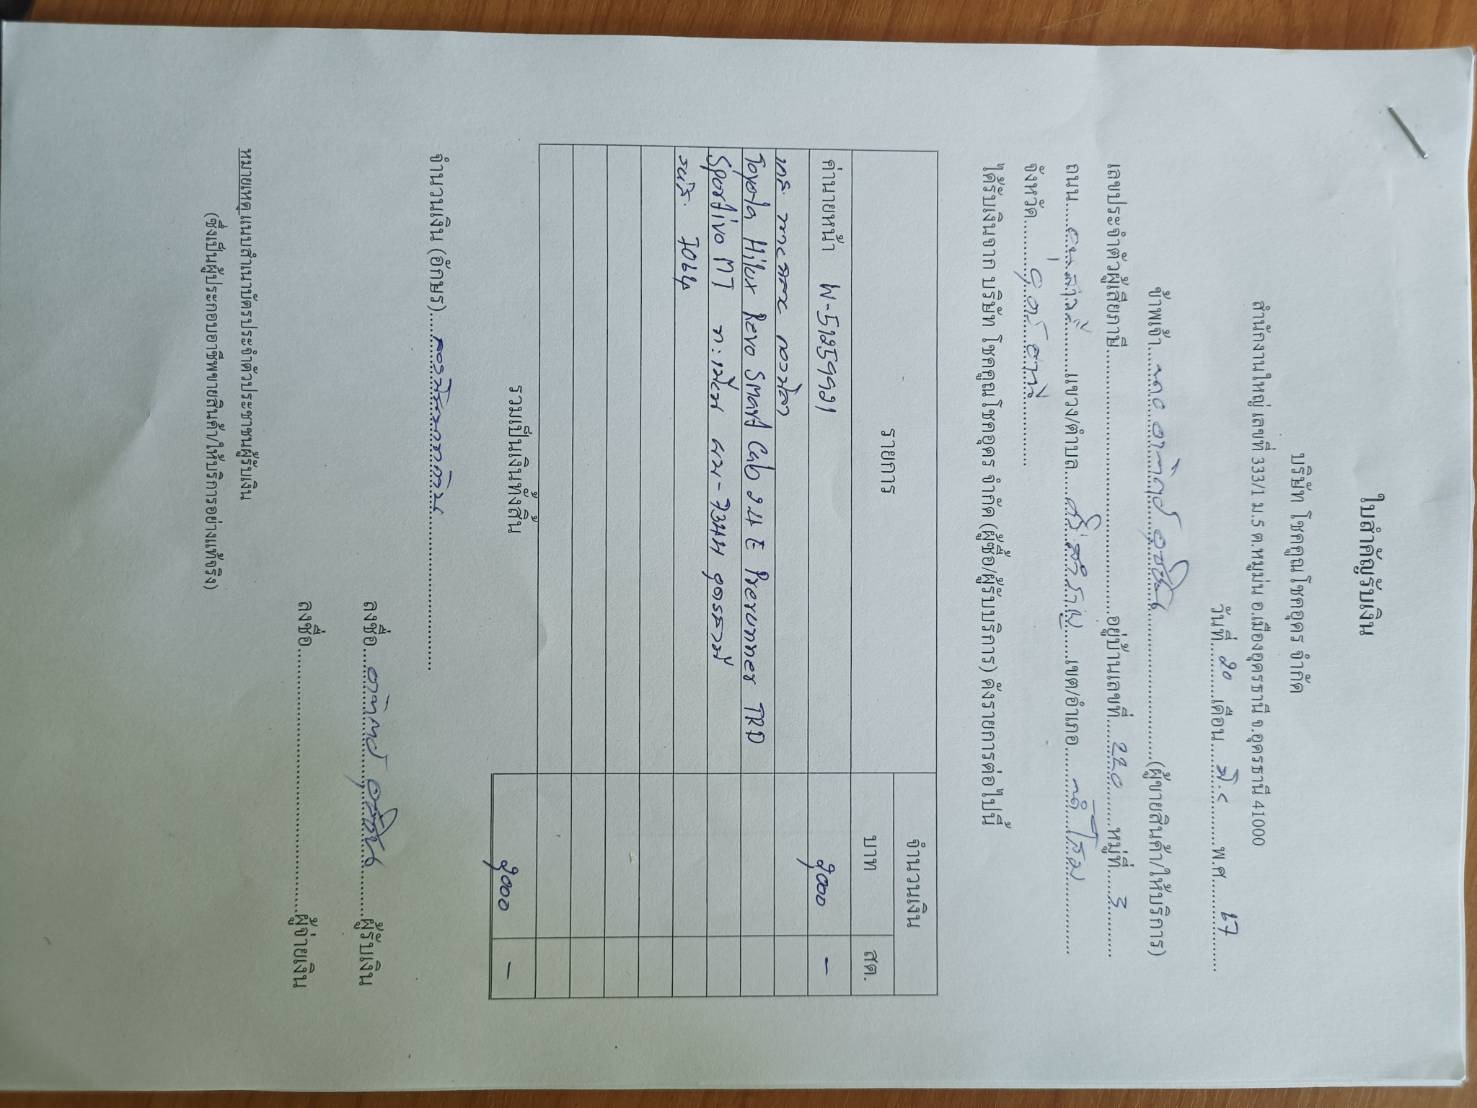 ใบสำคัญรับเงิน
บริษัท โชคคูณโชคอุดร จำกัด
สำนักงานใหญ่ เลขที่ 333/1 ม.5 ต.หมูม่น อ.เมืองอุดรธานี จ.อุดรธานี 41000
วันที่ 20 เดือน มิ.ย พ.ศ. 67
ข้าพเจ้า (ผู้ขายสินค้า/ให้บริการ)
เลขประจำตัวผู้เสียภาษี อยู่บ้านเลขที่ 220 หมู่ที่ 3
ถนน แขวง/ตำบล ศรีสำราญ เขต/อำเภอ
จังหวัด อุดรธานี
ได้รับเงินจาก บริษัท โชคคูณโชคอุดร จำกัด (ผู้ซื้อ/ผู้รับบริการ) ดังรายการต่อไปนี้
รายการ จำนวนเงิน
บาท สต.
ค่านายหน้า 2000 -
Toyota Hilux Revo Smart Cab 2.4 E Prerunner TRD
Sportivo MT ทะเบียน อุดรธานี
รวมเป็นเงินทั้งสิ้น 2000 -
จำนวนเงิน (อักษร) สองพันบาทถ้วน
ลงชื่อ ผู้รับเงิน
ลงชื่อ ผู้จ่ายเงิน
หมายเหตุ แนบสำเนาบัตรประจำตัวประชาชนผู้รับเงิน
(ซึ่งเป็นผู้ประกอบอาชีพขายสินค้า/ให้บริการอย่างแท้จริง)